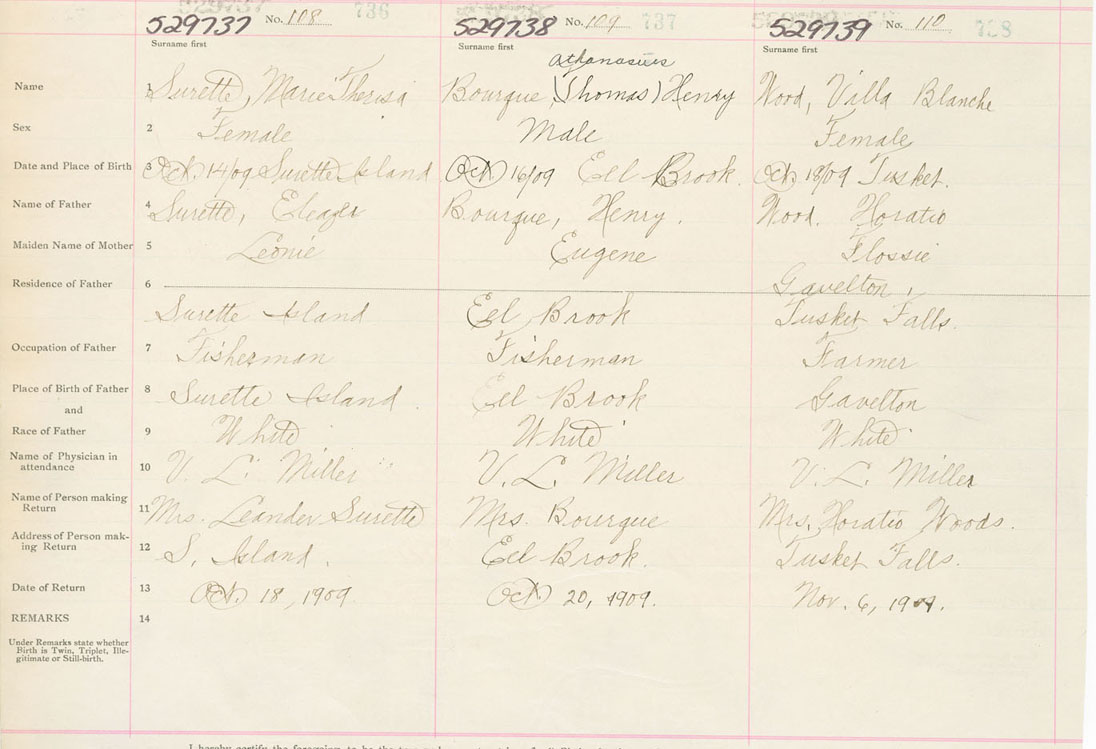 529737 No. 108 736 529738 No. 109 737 529739 No. 110 738
Surname first Surname first Surname first
Athanasius
Name 1 Surette, Marie Theresa Bourque, (Thomas) Henry Wood, Villa Blanche
Sex 2 Female Male Female
Date and Place of Birth 3 Oct. 14/09 Surette Island Oct 16/09 Eel Brook. Oct. 18/09 Tusket.
Name of Father 4 Surette, Eleazer Bourque, Henry. Wood. Horatio
Maiden Name of Mother 5 Leonie Eugene Flossie
Residence of Father 6 Gavelton,
Surette Island Eel Brook Tusket Falls.
Occupation of Father 7 Fisherman Fisherman Farmer
Place of Birth of Father 8 Surette Island. Eel Brook Gavelton
and
Race of Father 9 White White White
Name of Physician in
attendance 10 V. L. Miller V. L. Miller V. L. Miller
Name of Person making
Return 11 Mrs. Leander Surette Mrs. Bourque Mrs. Horatio Woods.
Address of Person mak-
ing Return 12 S. Island. Eel Brook. Tusket Falls.
Date of Return 13 Oct. 18, 1909. Oct. 20, 1909. Nov. 6, 1909.
REMARKS 14
Under Remarks state whether
Birth is Twin, Triplet, Ille-
gitimate or Still-birth.
I hereby certify the foregoing to be the true and